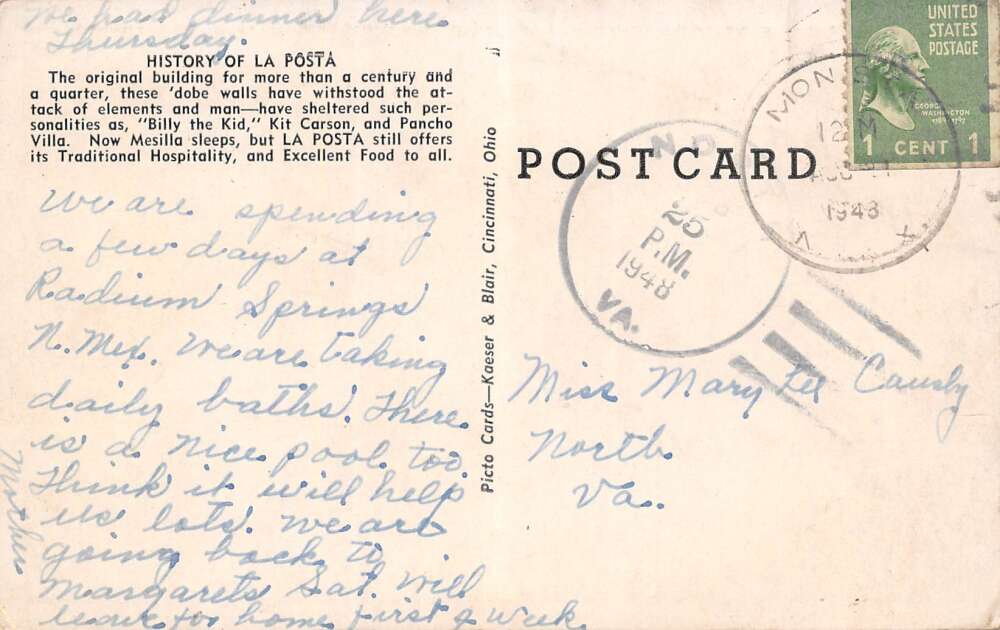 We had dinner here
Thursday.
HISTORY OF LA POSTA
The original building for more than a century and
a quarter, these 'dobe walls have withstood the at-
tack of elements and man—have sheltered such per-
sonalities as, "Billy the Kid," Kit Carson, and Pancho
Villa. Now Mesilla sleeps, but LA POSTA still offers
its Traditional Hospitality, and Excellent Food to all.
We are spending
a few days at
Radium Springs
N. Mex. We are taking
daily baths. There
is a nice pool too.
Think it will help
us lots. We are
going back to
Margarets Sat. Will
leave for home first of week.
Mother
Picto Cards—Kaeser & Blair, Cincinnati, Ohio
POST CARD
UNITED
STATES
POSTAGE
GEORGE
WASHINGTON
1789-1797
1 CENT 1
MON
12 M
1948
25
P.M.
1948
VA.
Miss Mary Lee Causby
North
Va.